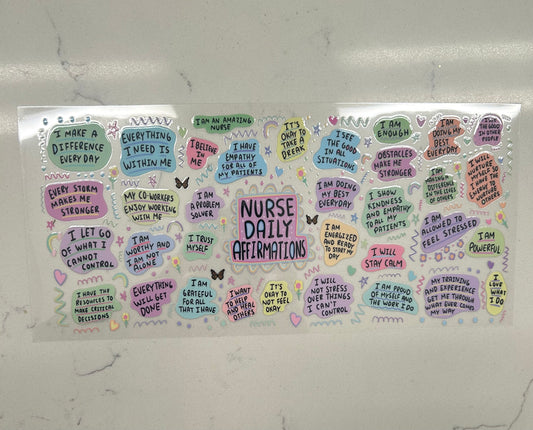 I MAKE A
DIFFERENCE
EVERY DAY
EVERYTHING
I NEED IS
WITHIN ME
I AM AN AMAZING
NURSE
I BELIEVE
IN ME
I HAVE
EMPATHY
FOR ALL OF
MY PATIENTS
IT'S
OKAY TO
TAKE A
BREAK
I SEE
THE GOOD
IN ALL
SITUATIONS
I AM
ENOUGH
I AM
DOING MY
BEST
EVERYDAY
THE GOOD
IN OTHER
PEOPLE
OBSTACLES
MAKE ME
STRONGER
I AM
MAKING A
DIFFERENCE
IN THE LIVES
OF OTHERS
I WILL
NURTURE
MYSELF SO
I
ENERGY TO
OTHERS
EVERY STORM
MAKES ME
STRONGER
MY CO-WORKERS
ENJOY WORKING
WITH ME
I AM
A PROBLEM
SOLVER
NURSE
DAILY
AFFIRMATIONS
I AM DOING
MY BEST
EVERYDAY
I SHOW
KINDNESS
AND EMPATHY
TO ALL MY
PATIENTS
I AM
ALLOWED TO
FEEL STRESSED
I LET GO
OF WHAT I
CANNOT
CONTROL
I AM
WORTHY AND
I AM NOT
ALONE
I TRUST
MYSELF
I AM
ENERGIZED
AND READY
TO START MY
DAY
I WILL
STAY CALM
I AM
POWERFUL
I HAVE THE
RESOURCES TO
MAKE CRITICAL
DECISIONS
EVERYTHING
WILL GET
DONE
I AM
GRATEFUL
FOR ALL
THAT I HAVE
I WANT
TO HELP
AND HEAL
OTHERS
IT'S
OKAY TO
NOT FEEL
OKAY
I WILL
NOT STRESS
OVER THINGS
I CAN'T
CONTROL
I AM PROUD
OF MYSELF AND
THE WORK I DO
MY TRAINING
AND EXPERIENCE
GET ME THROUGH
WHAT EVER COMES
MY WAY
I
LOVE
WHAT
I DO